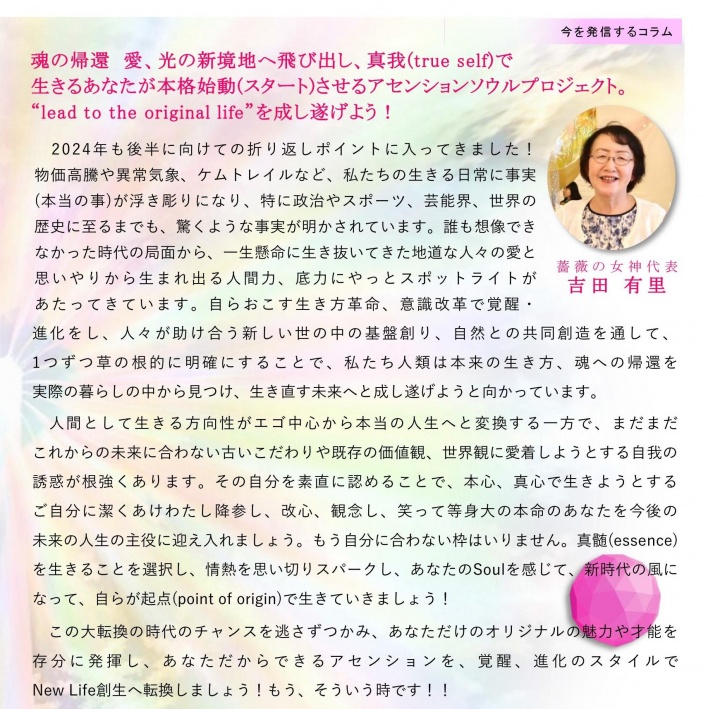 今を発信するコラム
魂の帰還　愛、光の新境地へ飛び出し、真我(true self)で
生きるあなたが本格始動(スタート)させるアセンションソウルプロジェクト。
“lead to the original life”を成し遂げよう！
2024年も後半に向けての折り返しポイントに入ってきました！
物価高騰や異常気象、ケムトレイルなど、私たちの生きる日常に事実
(本当の事)が浮き彫りになり、特に政治やスポーツ、芸能界、世界の
歴史に至るまでも、驚くような事実が明かされています。誰も想像でき
なかった時代の局面から、一生懸命に生き抜いてきた地道な人々の愛と
思いやりから生まれ出る人間力、底力にやっとスポットライトが
あたってきています。自らおこす生き方革命、意識改革で覚醒・
進化をし、人々が助け合う新しい世の中の基盤創り、自然との共同創造を通して、
1つずつ草の根的に明確にすることで、私たち人類は本来の生き方、魂への帰還を
実際の暮らしの中から見つけ、生き直す未来へと成し遂げようと向かっています。
人間として生きる方向性がエゴ中心から本当の人生へと変換する一方で、まだまだ
これからの未来に合わない古いこだわりや既存の価値観、世界観に愛着しようとする自我の
誘惑が根強くあります。その自分を素直に認めることで、本心、真心で生きようとする
ご自分に潔くあけわたし降参し、改心、観念し、笑って等身大の本命のあなたを今後の
未来の人生の主役に迎え入れましょう。もう自分に合わない枠はいりません。真髄(essence)
を生きることを選択し、情熱を思い切りスパークし、あなたのSoulを感じて、新時代の風に
なって、自らが起点(point of origin)で生きていきましょう！
この大転換の時代のチャンスを逃さずつかみ、あなただけのオリジナルの魅力や才能を
存分に発揮し、あなただからできるアセンションを、覚醒、進化のスタイルで
New Life創生へ転換しましょう！もう、そういう時です！！
薔薇の女神代表
吉田 有里